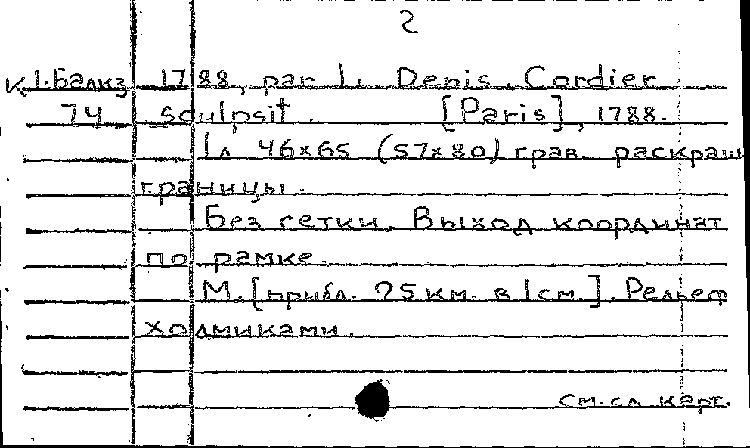 2
К 1.Балкз 1788, par L. Denis. Cordier
74 sculpsit. [Paris], 1788.
1л 46х65 (57х80) грав. раскраш
границы.
Без сетки. Выход координат
по рамке.
М. [прибл. 25 км. в 1 см.]. Рельеф
холмиками.
см. сл. карт.